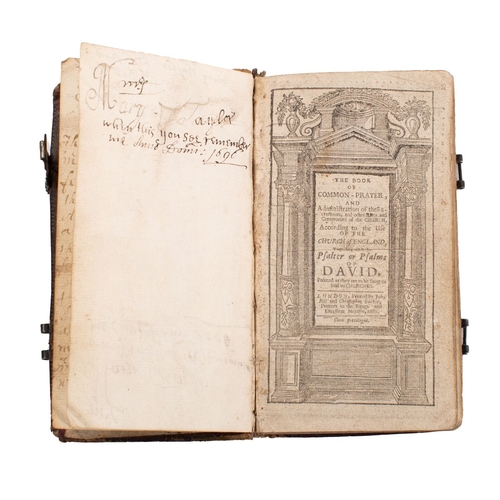 Mary Taylor
when this you see remember
me Anno Domi: 1696
THE BOOK
OF
COMMON-PRAYER,
AND
Administration of the Sa-
craments, and other Rites and
Ceremonies of the CHURCH,
According to the Use
OF THE
CHURCH of ENGLAND,
Together with the
Psalter or Psalms
OF
DAVID,
Pointed as they are to be sung or
said in CHURCHES.
LONDON, Printed by John
Bill and Christopher Barker,
Printers to the Kings most
Excellent Majesty,
Cum Privilegio.